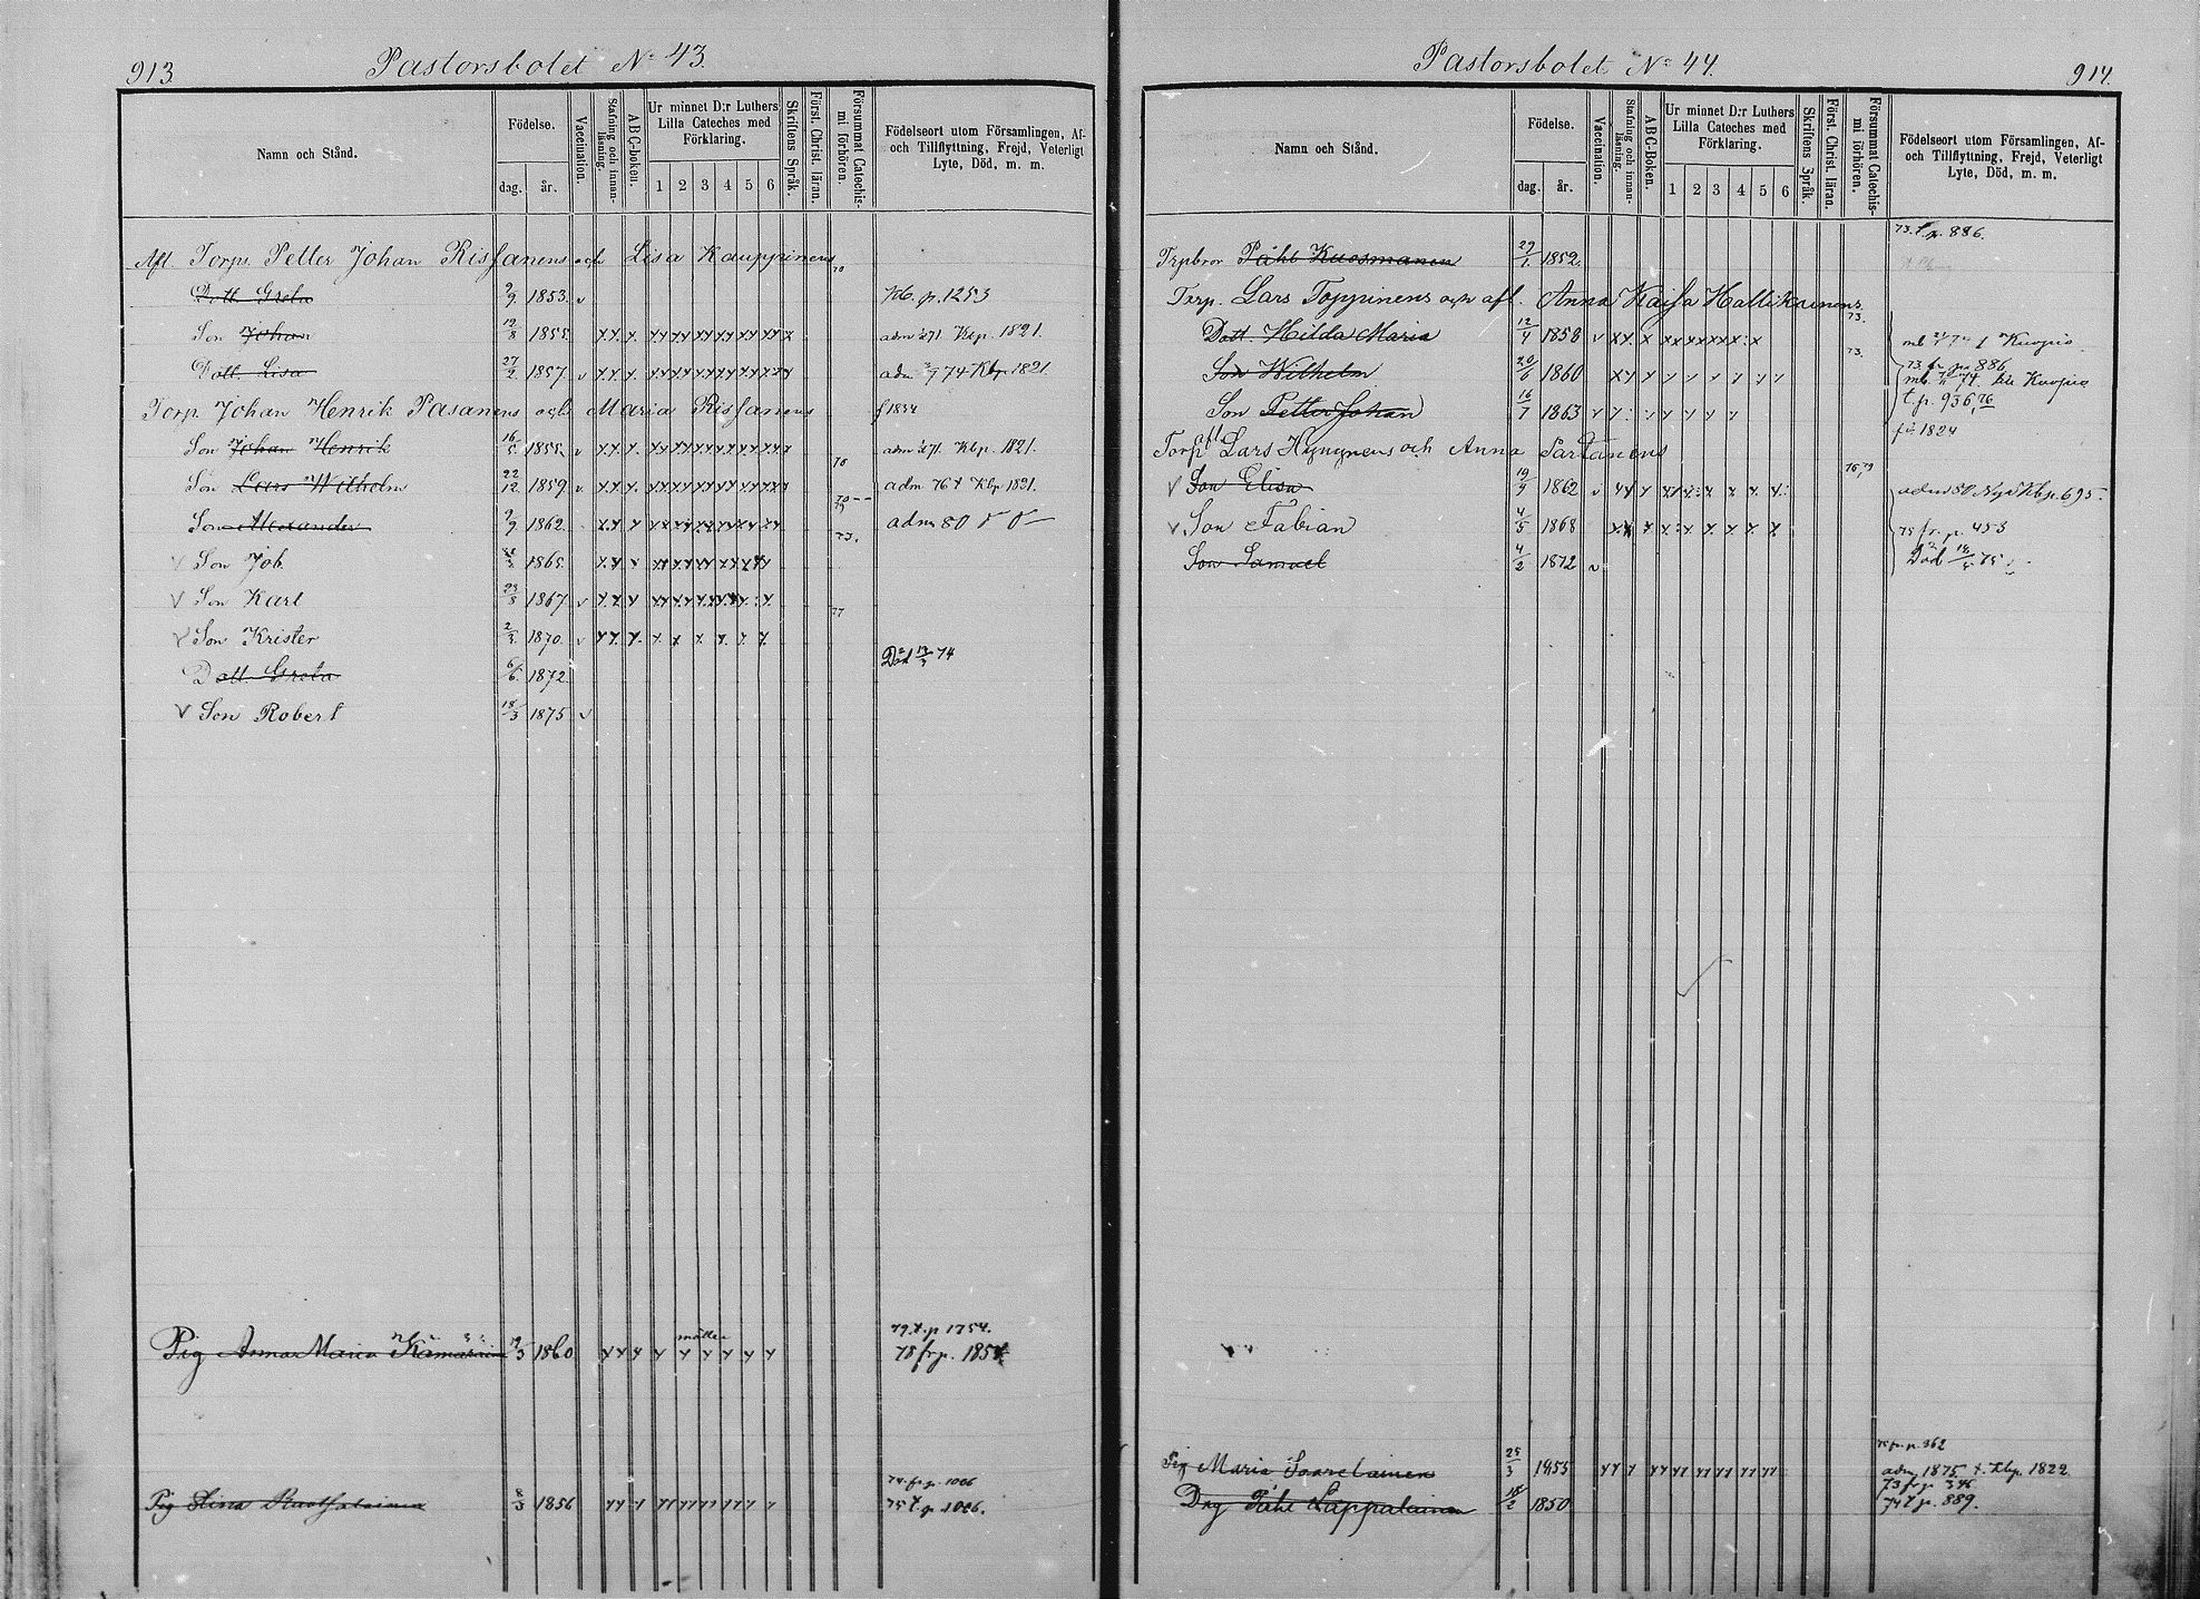 913
Pastorsbolet No 43.
Namn och Stånd.
Födelse.
dag. år.
Vaccination.
Stafning och innanläsning.
ABC-boken.
Ur minnet D:r Luthers Lilla Cateches med Förklaring.
1 2 3 4 5 6
Skriftens Språk.
Först. Christ. läran.
Försummat Catechismi förhören.
Födelseort utom Församlingen, Af- och Tillflyttning, Frejd, Veterligt Lyte, Död, m. m.
Afl. Torps. Petter Johan Rissanens och Lisa Kauppinens
Dott. Greta 9/9. 1853. v Kb. p. 1253
Son Johan 19/8 1855. 70 adm 71 Kbp. 1821.
Dott. Lisa 27/2 1857 v adm 74 Kbp 1821.
Torp. Johan Henrik Pasanens och Maria Rissanens f 1834
Son Johan Henrik 16/5. 1855. v adm 71 Kbp. 1821.
Son Lars Wilhelm 22/12. 1859 v. 70 adm 76 t Kbp 1821.
Son Alexander 9/9 1862. 70 79 adm 80
Son Job 1865. 73.
Son Karl 23/8 1867 v
Son Krister 2/3. 1870. v 77
Dott. Greta 6/6. 1872. Död 13/3 74
Son Robert 18/3 1875 v
Pig Anna Maria Kämäräinen 9/3 1860 79 t. p 1754.
78 fr p. 1854.
Pig Stina Rautsalainen 8/3 1856 74 fr p. 1006
75 t. p 1006.
Pastorsbolet No 44.
914.
Namn och Stånd.
Födelse.
dag. år.
Vaccination.
Stafning och innanläsning.
ABC-Boken.
Ur minnet D:r Luthers Lilla Cateches med Förklaring.
1 2 3 4 5 6
Skriftens Språk.
Först. Christ. läran.
Försummat Catechismi förhören.
Födelseort utom Församlingen, Af- och Tillflyttning, Frejd, Veterligt Lyte, Död, m. m.
Trpbror Påhl Kuosmanen 29/1. 1852. 73. t. p. 886.
Torp. Lars Toppinens och afl. Anna Kaisa Hallikainens
Dott. Hilda Maria 12/4 1858 v 73. Kuopio
Son Wilhelm 20/6 1860 73. 73 fr p. 886
74 till Kuopio
Son Petter Johan 16/7 1863 v t. p. 936, 76
Torp afl Lars Hynynens och Anna Partanens f. 1824
Son Elisa 19/9 1862 v 76, 79 adm 80 Nya Kbp. 695.
Son Fabian 4/5 1868 75 fr. p. 453
Son Samuel 4/2 1872 v Död 75
Pig Maria Saarelainen 25/3 1855 fr. p. 362
adm 1875 t. Kbp. 1822
Drg Påhl Lappalainen 18/2 1850 73 fr p 346
74 t p. 889.